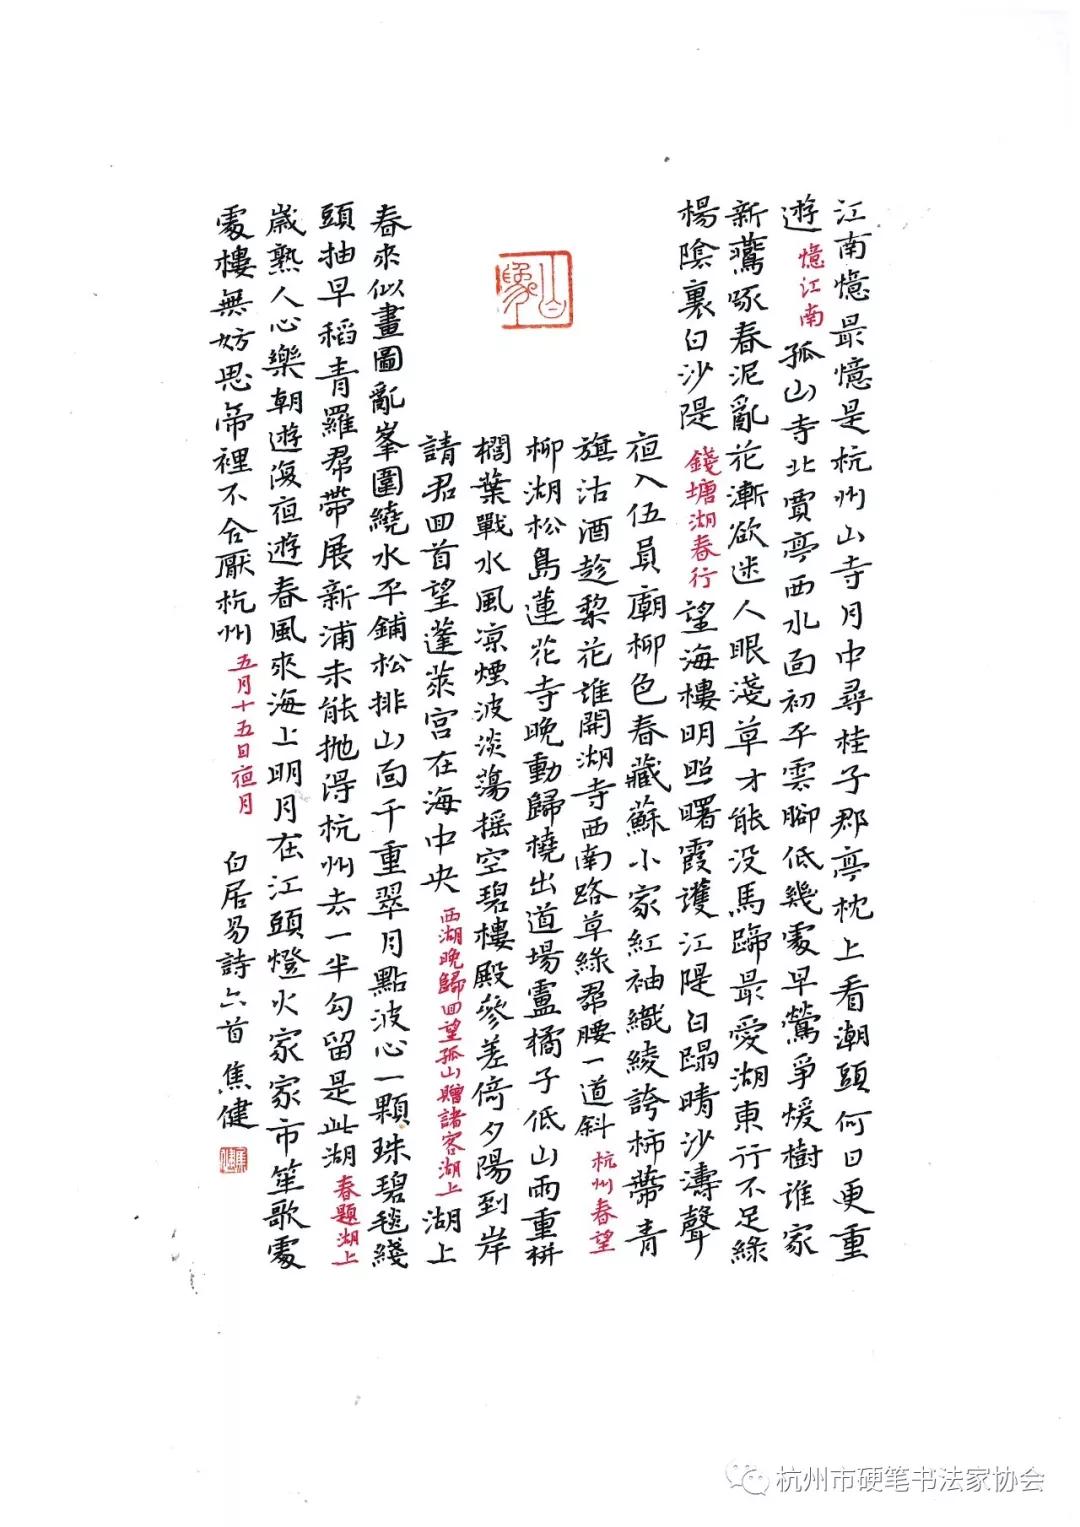 江南憶最憶是杭州山寺月中尋桂子郡亭枕上看潮頭何日更重
遊憶江南孤山寺北賈亭西水面初平雲腳低幾處早鶯爭煖樹誰家
新鷰啄春泥亂花漸欲迷人眼淺草才能没馬蹄最愛湖東行不足綠
楊陰裏白沙隄錢塘湖春行望海樓明照曙霞護江隄白蹋晴沙濤聲
夜入伍員廟柳色春藏蘇小家紅袖織綾誇柿蒂青
旗沽酒趁梨花誰開湖寺西南路草綠裙腰一道斜杭州春望
柳湖松島蓮花寺晚動歸橈出道場盧橘子低山雨重栟
櫚葉戰水風凉煙波淡蕩摇空碧樓殿參差倚夕陽到岸
請君回首望蓬萊宮在海中央西湖晚歸回望孤山贈諸客湖上湖上
春來似畫圖亂峯圍繞水平鋪松排山面千重翠月點波心一顆珠碧毯綫
頭抽早稻青羅帬帶展新浦未能抛得杭州去一半勾留是此湖春題湖上
歲熟人心樂朝遊復夜遊春風來海上明月在江頭燈火家家市笙歌處
處樓無妨思帝裡不合厭杭州五月十五日夜月
白居易詩六首 焦健
杭州市硬笔书法家协会